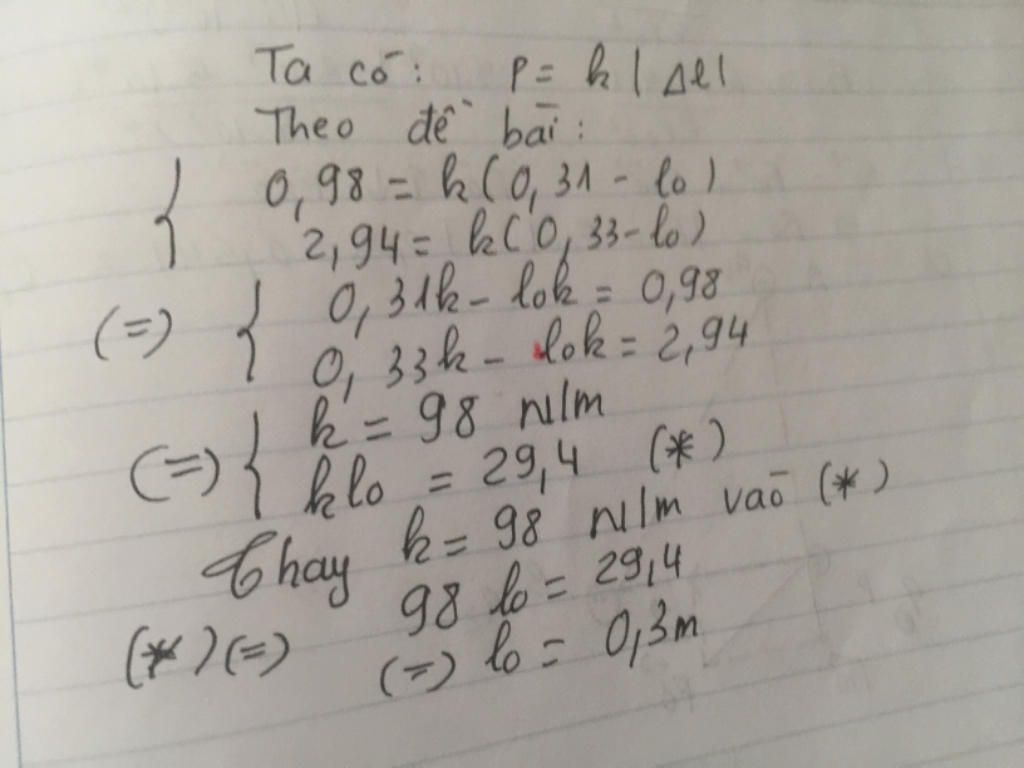 Ta có: P = k|Δl|
Theo đề bài:
{ 0,98 = k(0,31 - lo)
2,94 = k(0,33 - lo)
(=) { 0,31k - lok = 0,98
0,33k - lok = 2,94
(=) { k = 98 N/m
klo = 29,4 (*)
Thay k = 98 N/m vào (*)
(*) (=) 98 lo = 29,4
(=) lo = 0,3m